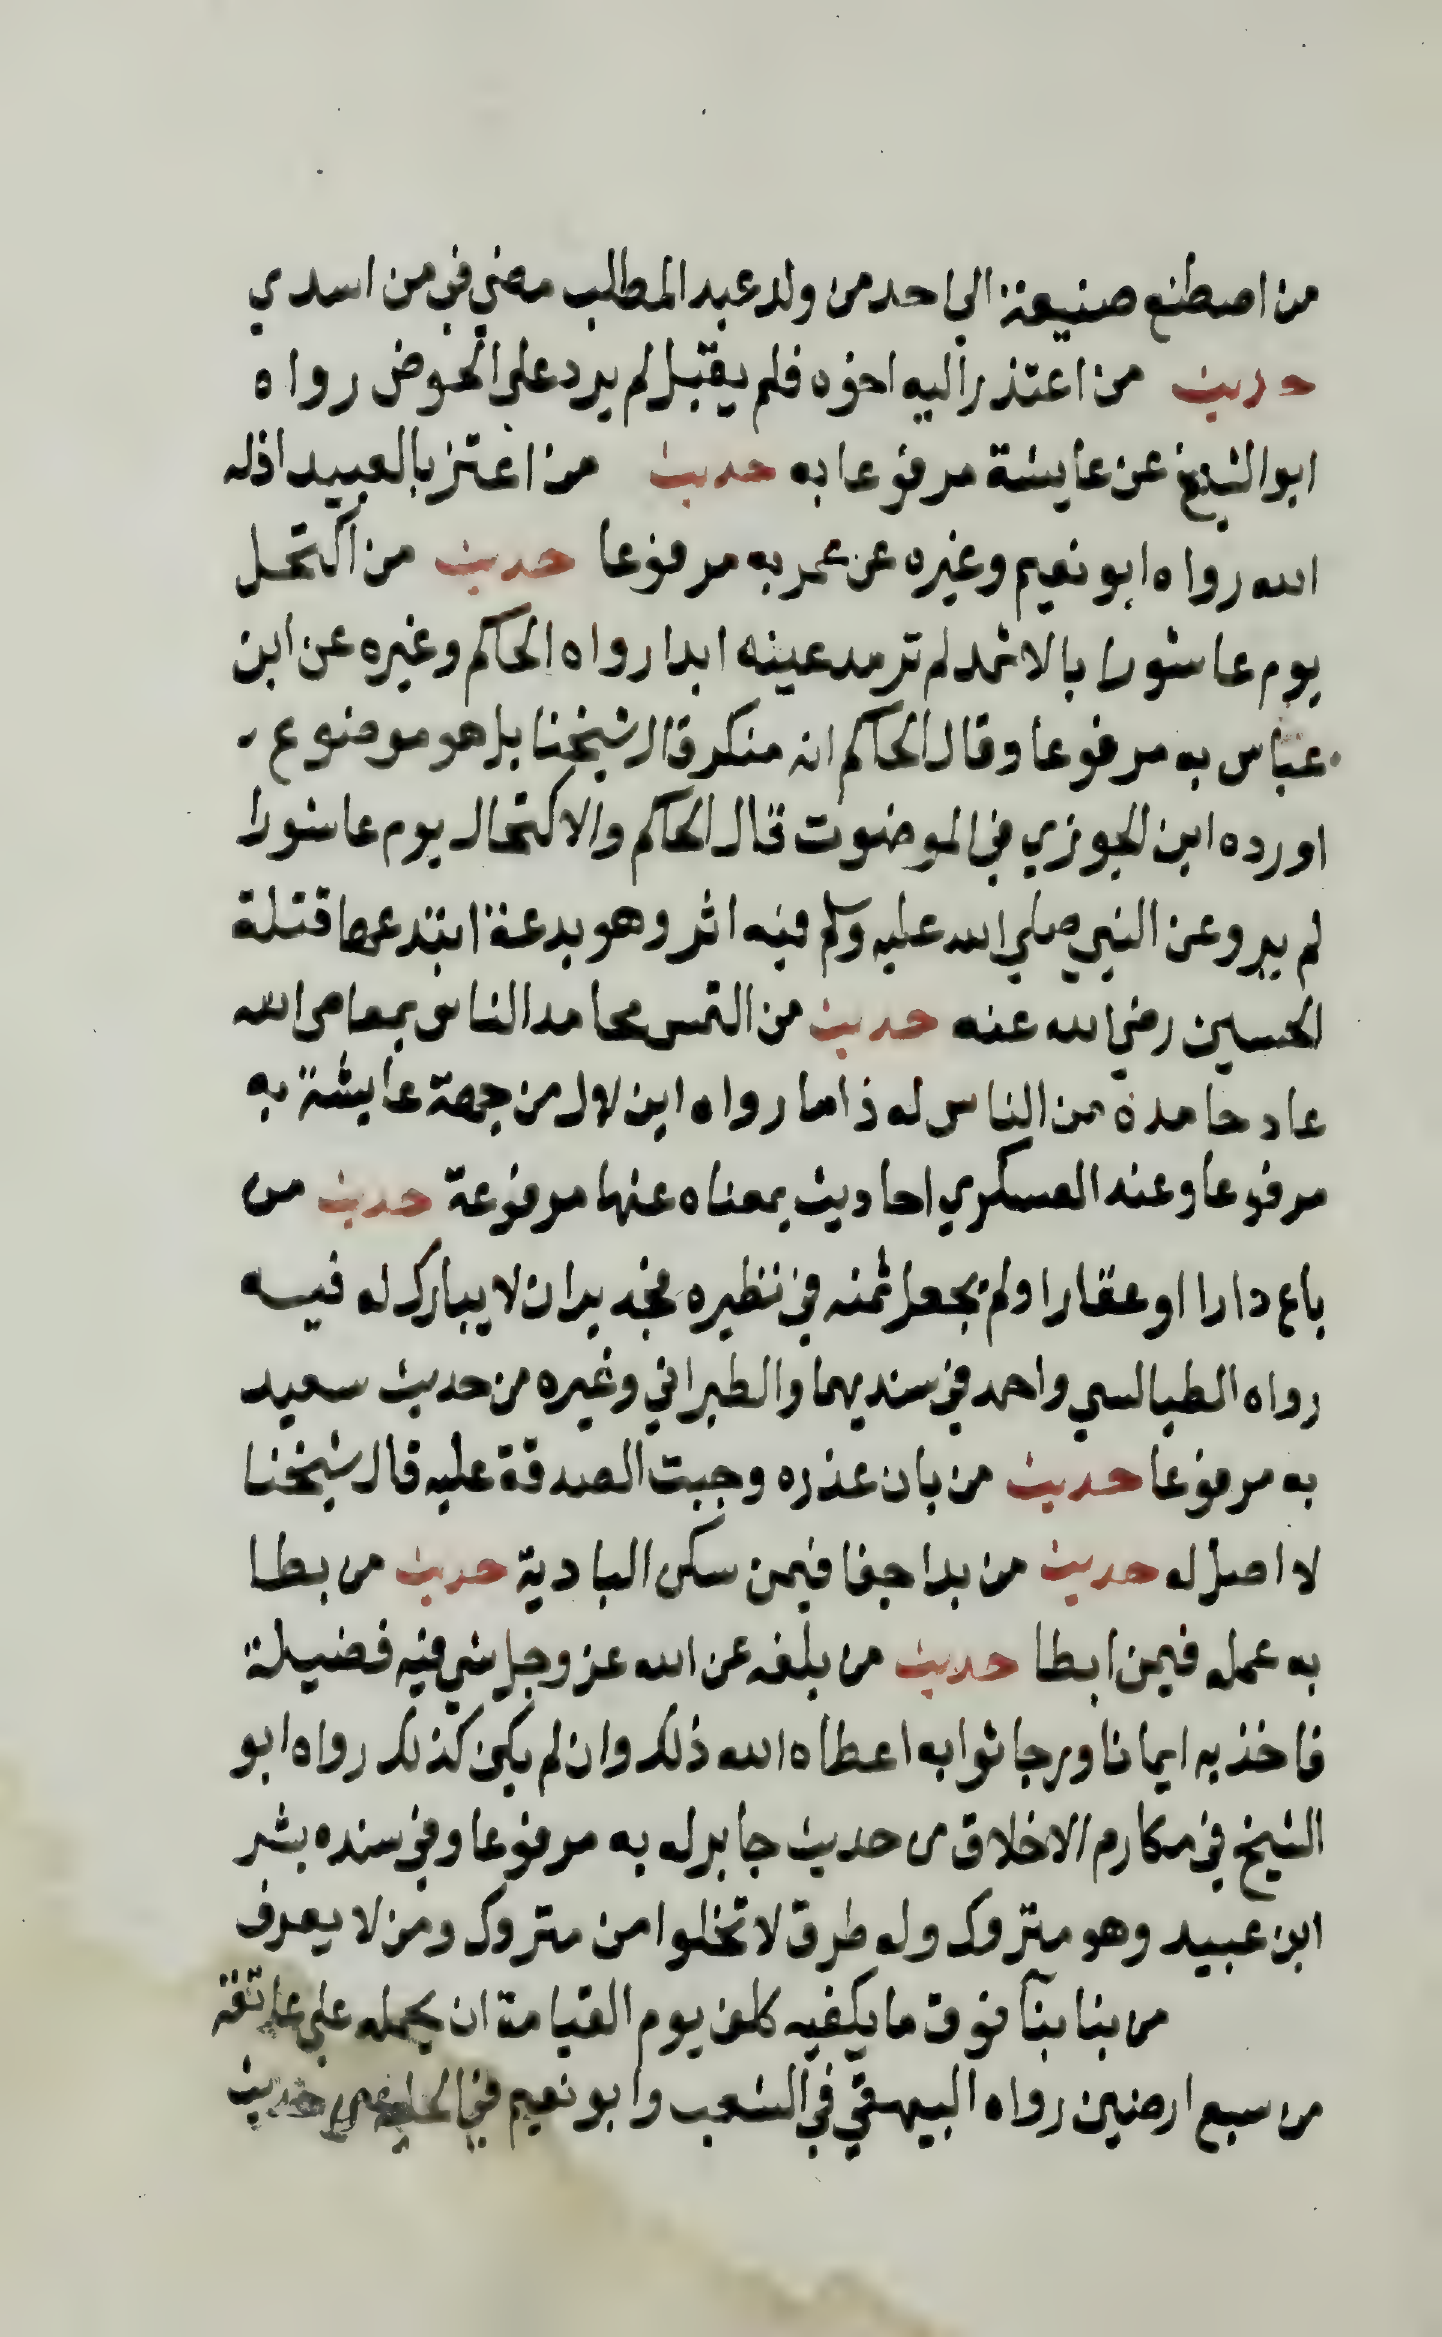 من اصطنع صنيعة الي احد من ولد عبد المطلب مضي في من اسدي
حديث من اعتذر اليه اخوه فلم يقبل لم يرد علي الحوض رواه
ابو الشيخ عن عايشة مرفوعا به حديث من اعتز بالعبيد اذله
الله رواه ابو نعيم وغيره عن عمر به مرفوعا حديث من اكتحل
يوم عاشورا بالاثمد لم ترمد عينه ابدا رواه الحاكم وغيره عن ابن
عباس به مرفوعا وقال الحاكم انه منكر قال شيخنا بل هو موضوع
اورده ابن الجوزي في الموضوت قال الحاكم والاكتحال يوم عاشورا
لم يرو عن النبي صلي الله عليه وسلم فيه اثر وهو بدعة ابتدعها قتلة
الحسين رضي الله عنه حديث من التمس محامد الناس بمعاصي الله
عاد حامده من الناس له ذاما رواه ابن لال من جهة عايشة به
مرفوعا وعند العسكري احاديث بمعناه عنها مرفوعة حديث من
باع دارا او عقارا ولم يجعل ثمنه في نظيره فجدير ان لا يبارك له فيه
رواه الطيالسي واحمد في سنديهما والطبراني وغيره من حديث سعيد
به مرفوعا حديث من بان عذره وجبت الصدقة عليه قال شيخنا
لا اصل له حديث من بدا جفا فيمن سكن البادية حديث من بطا
به عمله فيمن ابطا حديث من بلغه عن الله عز وجل شي فيه فضيلة
فاخذ به ايمانا ورجا ثوابه اعطاه الله ذلك وان لم يكن كذلك رواه ابو
الشيخ في مكارم الاخلاق من حديث جابر له به مرفوعا وفي سنده بشر
ابن عبيد وهو متروك وله طرق لا تخلوا من متروك ومن لا يعرف
من بنا بنآ فوق ما يكفيه كلف يوم القيامة ان يحمله علي عاتقة
من سبع ارضين رواه البيهقي في الشعب وابو نعيم في الحلية حديث